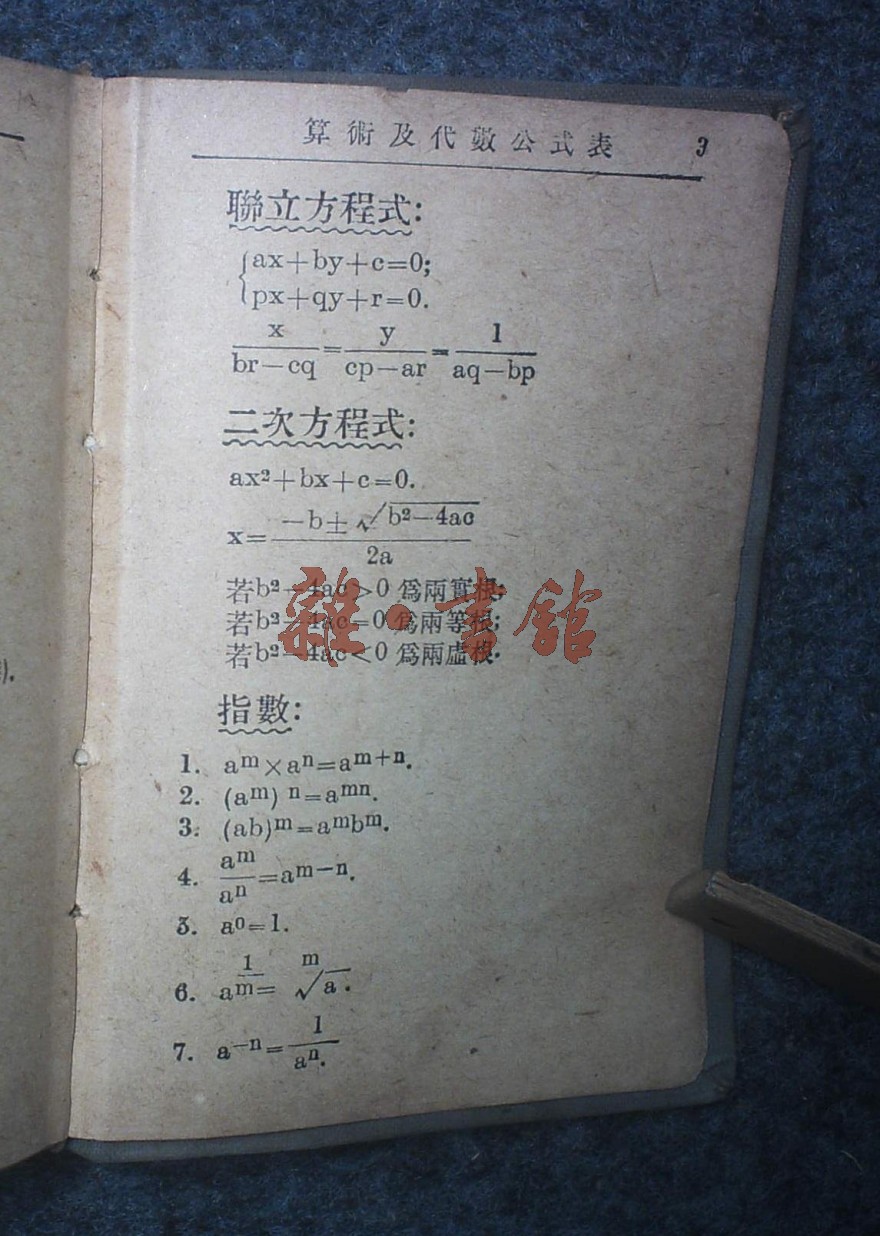 算術及代數公式表 3
聯立方程式:
{ax+by+c=0;
px+qy+r=0.
x/(br-cq)=y/(cp-ar)=1/(aq-bp)
二次方程式:
ax²+bx+c=0.
x=(-b±√(b²-4ac))/2a
若b²-4ac>0 爲兩實根;
若b²-4ac=0 爲兩等根;
若b²-4ac<0 爲兩虛根.
雜·書館
指數:
1. aᵐ×aⁿ=aᵐ⁺ⁿ.
2. (aᵐ)ⁿ=aᵐⁿ.
3. (ab)ᵐ=aᵐbᵐ.
4. aᵐ/aⁿ=aᵐ⁻ⁿ.
5. a⁰=1.
6. a^(1/m)=ᵐ√a.
7. a⁻ⁿ=1/aⁿ.